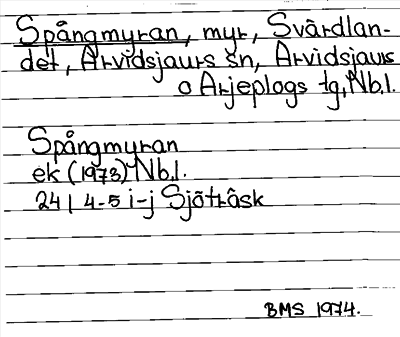 Spångmyran, myr, Svärdlan-
det, Arvidsjaurs sn, Arvidsjaurs
o Arjeplogs tg, Nb.l.
Spångmyran
ek (1973) Nb.l.
24 I 4-5 i-j Sjöträsk
BMS 1974.